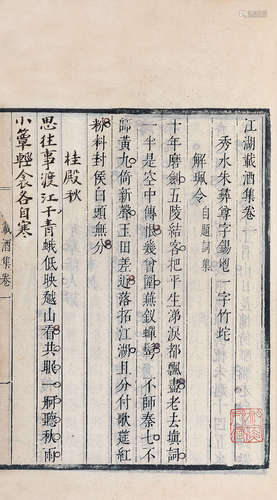 江湖載酒集卷
秀水朱彝尊字錫鬯一字竹垞
解珮令 自題詞集
十年磨劍五陵結客把平生涕淚都飄盡老去填詞
一半是空中傳恨幾曾圍燕釵蟬鬢 不師秦七不
師黃九倚新聲玉田差近落拓江湖且分付歌筵紅
粉料封侯白頭無分
桂殿秋
思往事渡江干青蛾低映越山看共眠一舸聽秋雨
小簟輕衾各自寒
載酒集卷